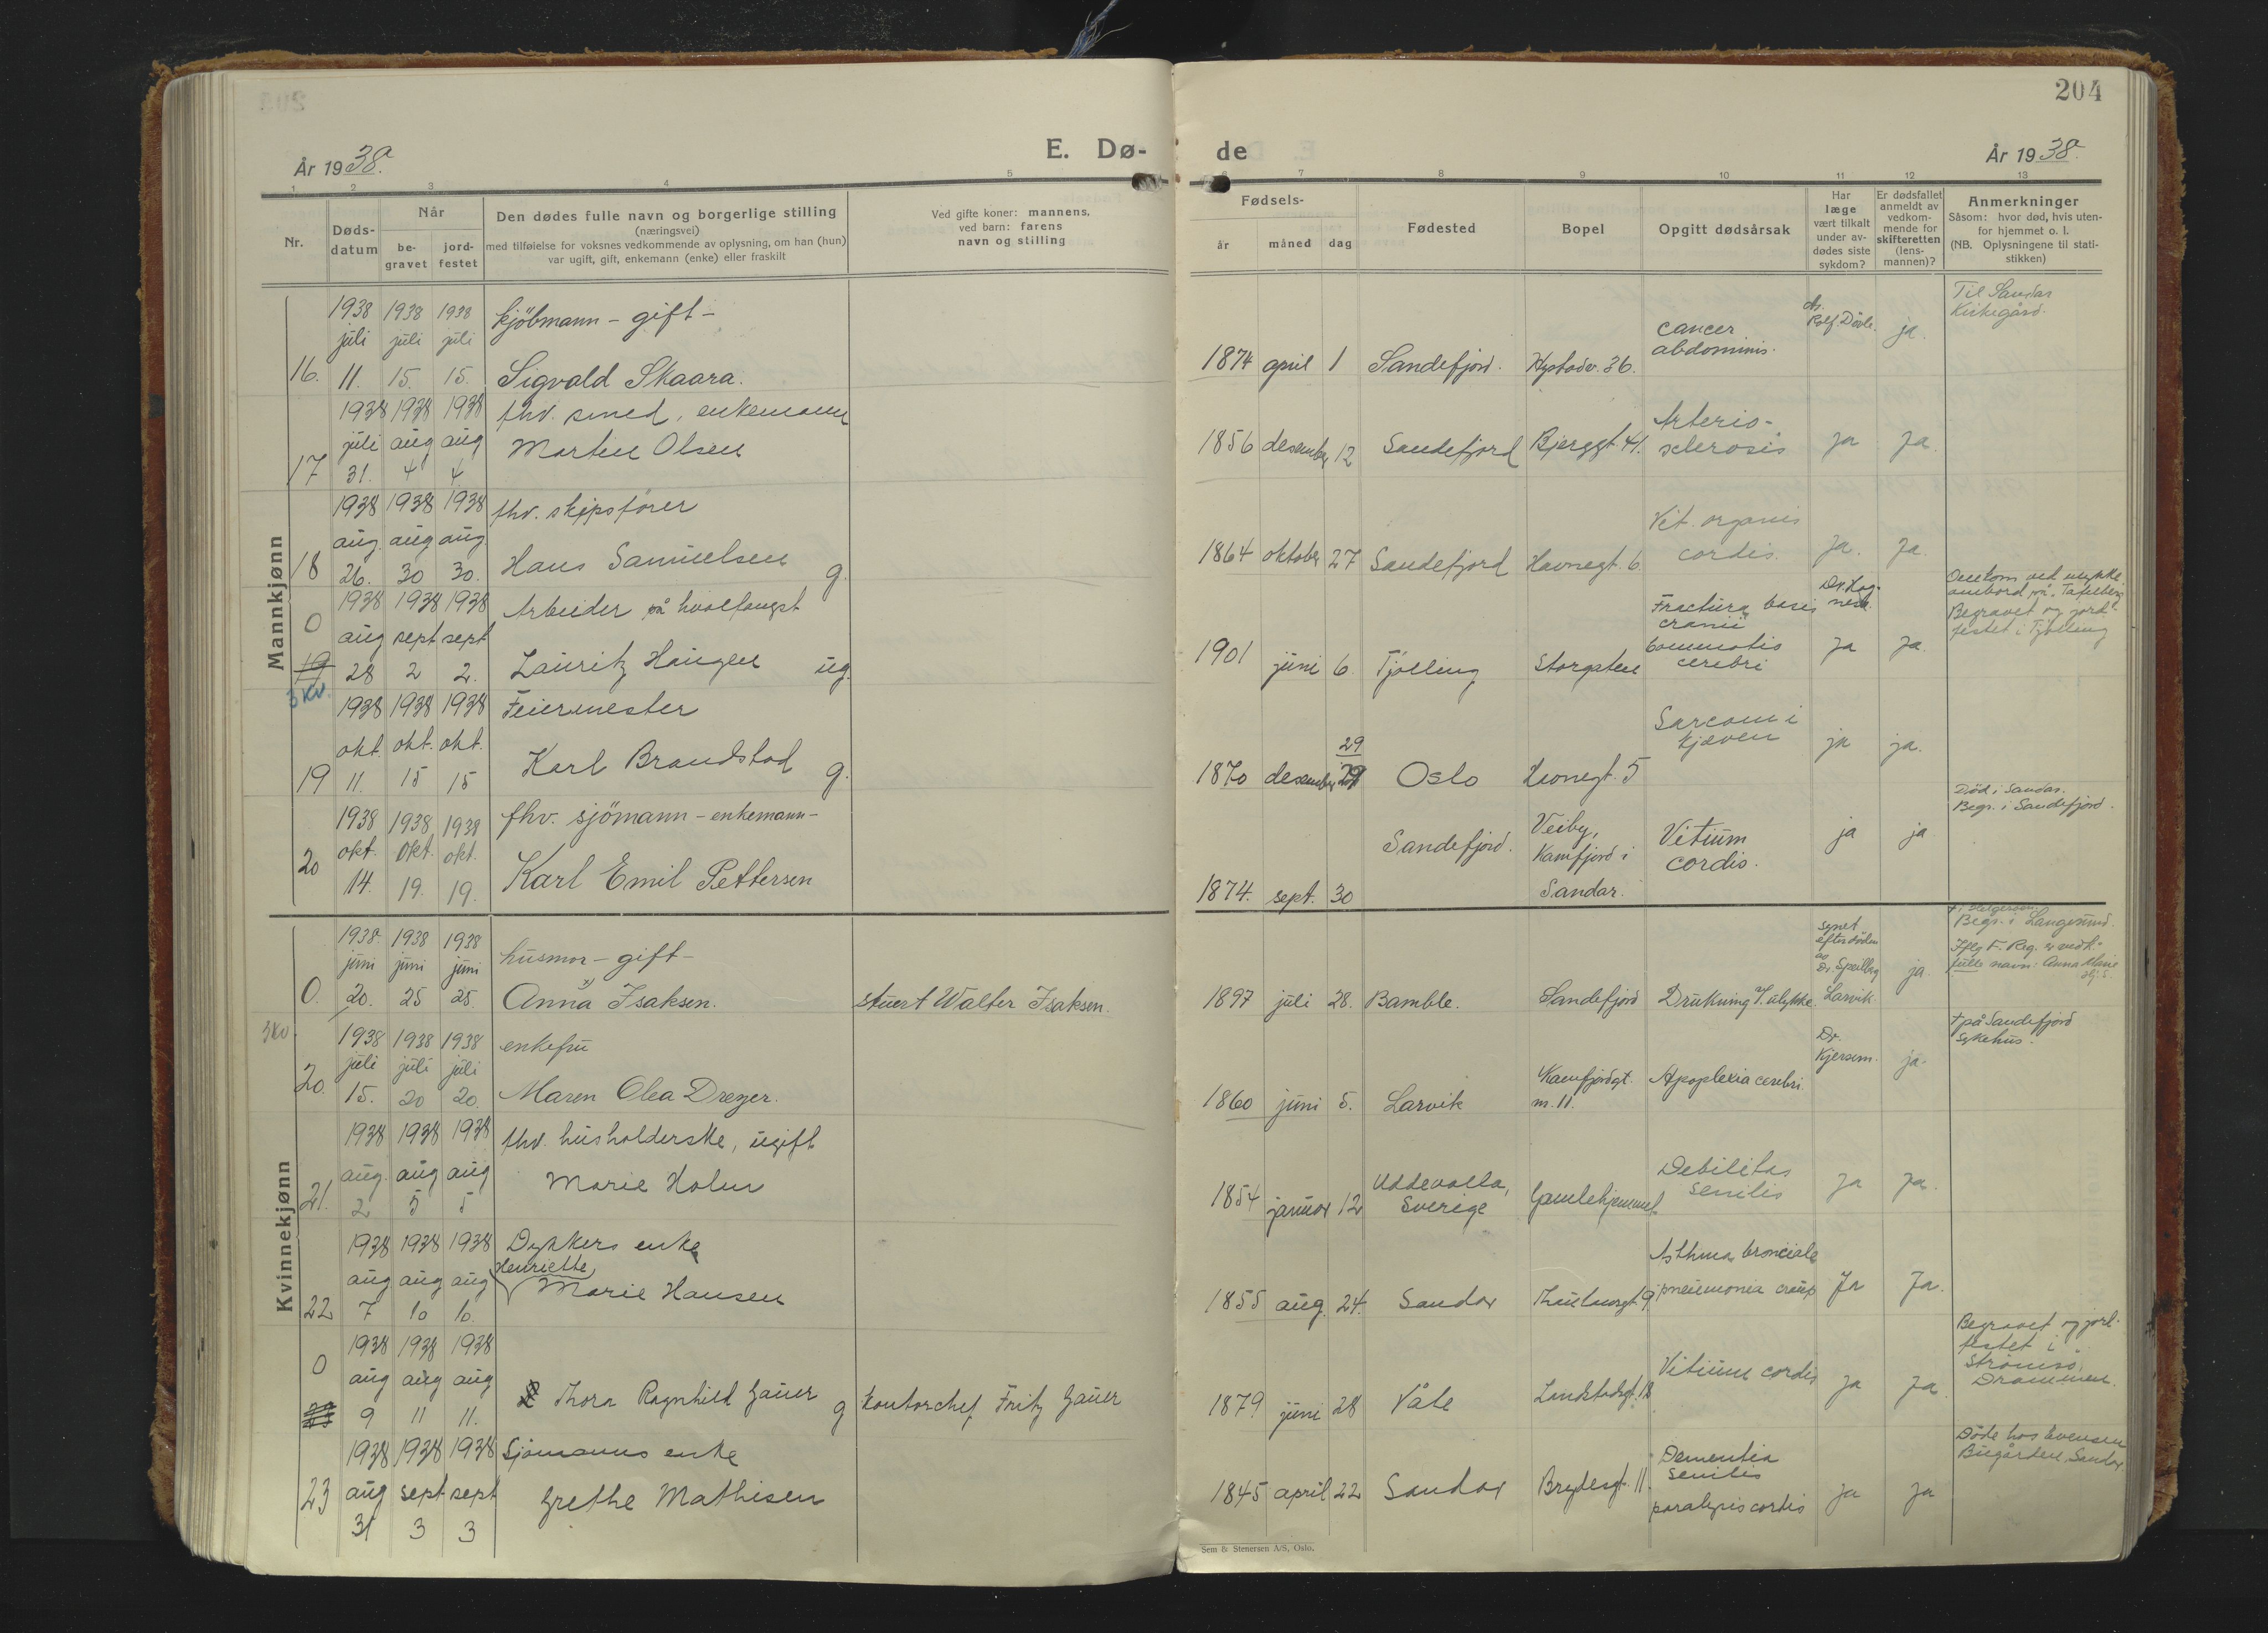 204
E. Dø- de
År 1938.
År 1938.
1 2 3 4 5 6 7 8 9 10 11 12 13
Nr.
Døds-
datum
Når
be-
gravet
jord-
festet
Den dødes fulle navn og borgerlige stilling
(næringsvei)
med tilføielse for voksnes vedkommende av oplysning, om han (hun)
var ugift, gift, enkemann (enke) eller fraskilt
Ved gifte koner: mannens,
ved barn: farens
navn og stilling
Fødsels-
år måned dag
Fødested
Bopel
Opgitt dødsårsak
Har
læge
vært tilkalt
under av-
dødes siste
sykdom?
Er dødsfallet
anmeldt av
vedkom-
mende for
skifteretten
(lens-
mannen)?
Anmerkninger
Såsom: hvor død, hvis uten-
for hjemmet o. l.
(NB. Oplysningene til stati-
stikken)
Mannkjønn
1938 1938 1938 kjöbmann – gift –
juli juli juli
16. 11. 15. 15. Sigvald Skaara.
1874 april 1 Sandefjord. Hystadv. 36.
cancer
abdominis.
Dr.
Rolf. Dövle. ja.
Til Sandar
Kirkegård.
1938 1938 1938 fhv. smed, enkemann
juli aug aug Morten Olsen
17 31. 4 4
1856 desember 12 Sandefjord Bjerggt. 41.
Arterio-
sclerosis ja ja.
1938 1938 1938 fhv. skipsfører
aug. aug aug.
18 26. 30 30. Hans Samuelsen g.
1864 oktober 27 Sandefjord Havnegt. 6.
Vit. organis
cordis. ja. ja.
1938 1938 1938 Arbeider på hvalfangst
0 aug sept sept
19 28 2 2. Lauritz Haugen ug.
3 KV.
1901 juni 6. Tjølling Storgaten
Fractura basis
cranii
Commotio
cerebri
ja ja.
Omkom ved ulykke
ombord på "Tafelberg"
Begravet og jord-
festet i Tjølling
1938 1938 1938 Feiermester
okt. okt. okt.
19 11. 15 15 Karl Brandstad g.
29
1870 desember 29 Oslo
Sarcom i
kjæven ja ja.
1938 1938 1938 fhv. sjömann – enkemann –
okt. okt. okt.
20 14. 19. 19. Karl Emil Pettersen
1874. sept. 30 Sandefjord.
Veiby,
Kamfjord i
Sandar.
Vitium
cordis.
ja ja
Död i Sandar.
Begr. i Sandefjord.
Kvinnekjønn
1938. 1938 1938 husmor – gift –
juni juni juni
0. 20. 25 25. Anna Isaksen. stuert Walter Isaksen.
1897 juli 28. Bamble. Sandefjord Drukning v. ulykke.
synet
efter døden
av
Dr. Speilberg
Larvik ja.
Begr. i Langesund.
fulle navn: Anna Marie
3 KV.
1938 1938 1938 enkefru
juli juli juli
20. 15. 20 20. Maren Olea Dreyer.
1860 juni 5. Larvik
Kamfjordgt.
nr. 11.
Apoplexia cerebri.
Dr.
Kjersem. ja.
† på Sandefjord
sykehus.
1938 1938 1938 fhv. husholderske, ugift
aug. aug aug
21. 2 5 5 Marie Holm
1854 januar 12
Uddevalla,
Sverige
Gamlehjemmet
Debilitas
senilis ja ja.
1938 1938 1938 Dykkers enke
Henriette
aug aug aug Marie Hansen
22 7 10 10.
1855 aug. 24. Sandar Thaulowsgt. 9
Asthma bronciale
pneumonia croup ja ja.
1938 1938 1938
0 aug aug aug
23 9 11 11. Thora Ragnhild Gauer g kontorchef Fritz Gauer
1879 juni 28 Våle Landstadsgt. 18
Vitium cordis ja ja.
Begravet og jord-
festet i
Strømsø,
Drammen.
1938 1938 1938 Sjømanns enke
23 aug sept sept Grethe Mathisen
31 3 3
1845 april 22 Sandar Brydesgt. 11.
Dementia
senilis
paralysis cordis ja ja
Døde hos Evensen
Bugården, Sandar
Sem & Stenersen A/S, Oslo.